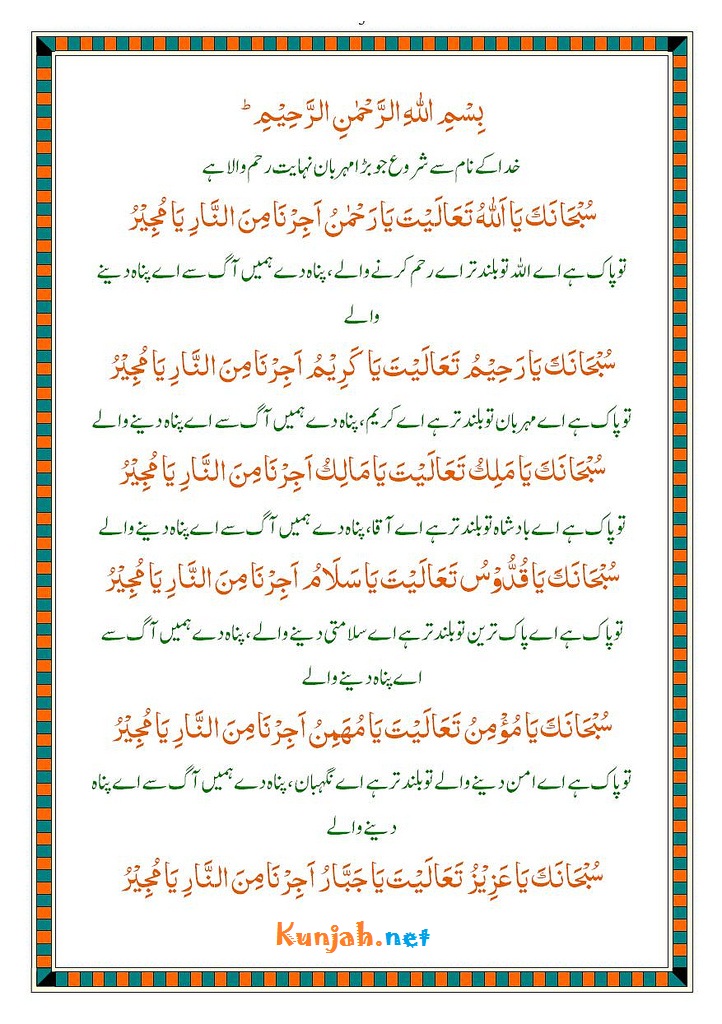 بِسْمِ اللهِ الرَّحْمٰنِ الرَّحِيْمِ ؕ
خدا کے نام سے شروع جو بڑا مہربان نہایت رحم والا ہے
سُبْحَانَكَ يَا اَللهُ تَعَالَيْتَ يَا رَحْمٰنُ اَجِرْنَا مِنَ النَّارِ يَا مُجِيْرُ
تو پاک ہے اے اللہ تو بلند تر اے رحم کرنے والے، پناہ دے ہمیں آگ سے اے پناہ دینے
والے
سُبْحَانَكَ يَا رَحِيْمُ تَعَالَيْتَ يَا كَرِيْمُ اَجِرْنَا مِنَ النَّارِ يَا مُجِيْرُ
تو پاک ہے اے مہربان تو بلند تر ہے اے کریم، پناہ دے ہمیں آگ سے اے پناہ دینے والے
سُبْحَانَكَ يَا مَلِكُ تَعَالَيْتَ يَا مَالِكُ اَجِرْنَا مِنَ النَّارِ يَا مُجِيْرُ
تو پاک ہے اے بادشاہ تو بلند تر ہے اے آقا، پناہ دے ہمیں آگ سے اے پناہ دینے والے
سُبْحَانَكَ يَا قُدُّوْسُ تَعَالَيْتَ يَا سَلَامُ اَجِرْنَا مِنَ النَّارِ يَا مُجِيْرُ
تو پاک ہے اے پاک ترین تو بلند تر ہے اے سلامتی دینے والے، پناہ دے ہمیں آگ سے
اے پناہ دینے والے
سُبْحَانَكَ يَا مُؤْمِنُ تَعَالَيْتَ يَا مُهَمِنُ اَجِرْنَا مِنَ النَّارِ يَا مُجِيْرُ
تو پاک ہے اے امن دینے والے تو بلند تر ہے اے نگہبان، پناہ دے ہمیں آگ سے اے پناہ
دینے والے
سُبْحَانَكَ يَا عَزِيْزُ تَعَالَيْتَ يَا جَبَّارُ اَجِرْنَا مِنَ النَّارِ يَا مُجِيْرُ
Kunjah.net